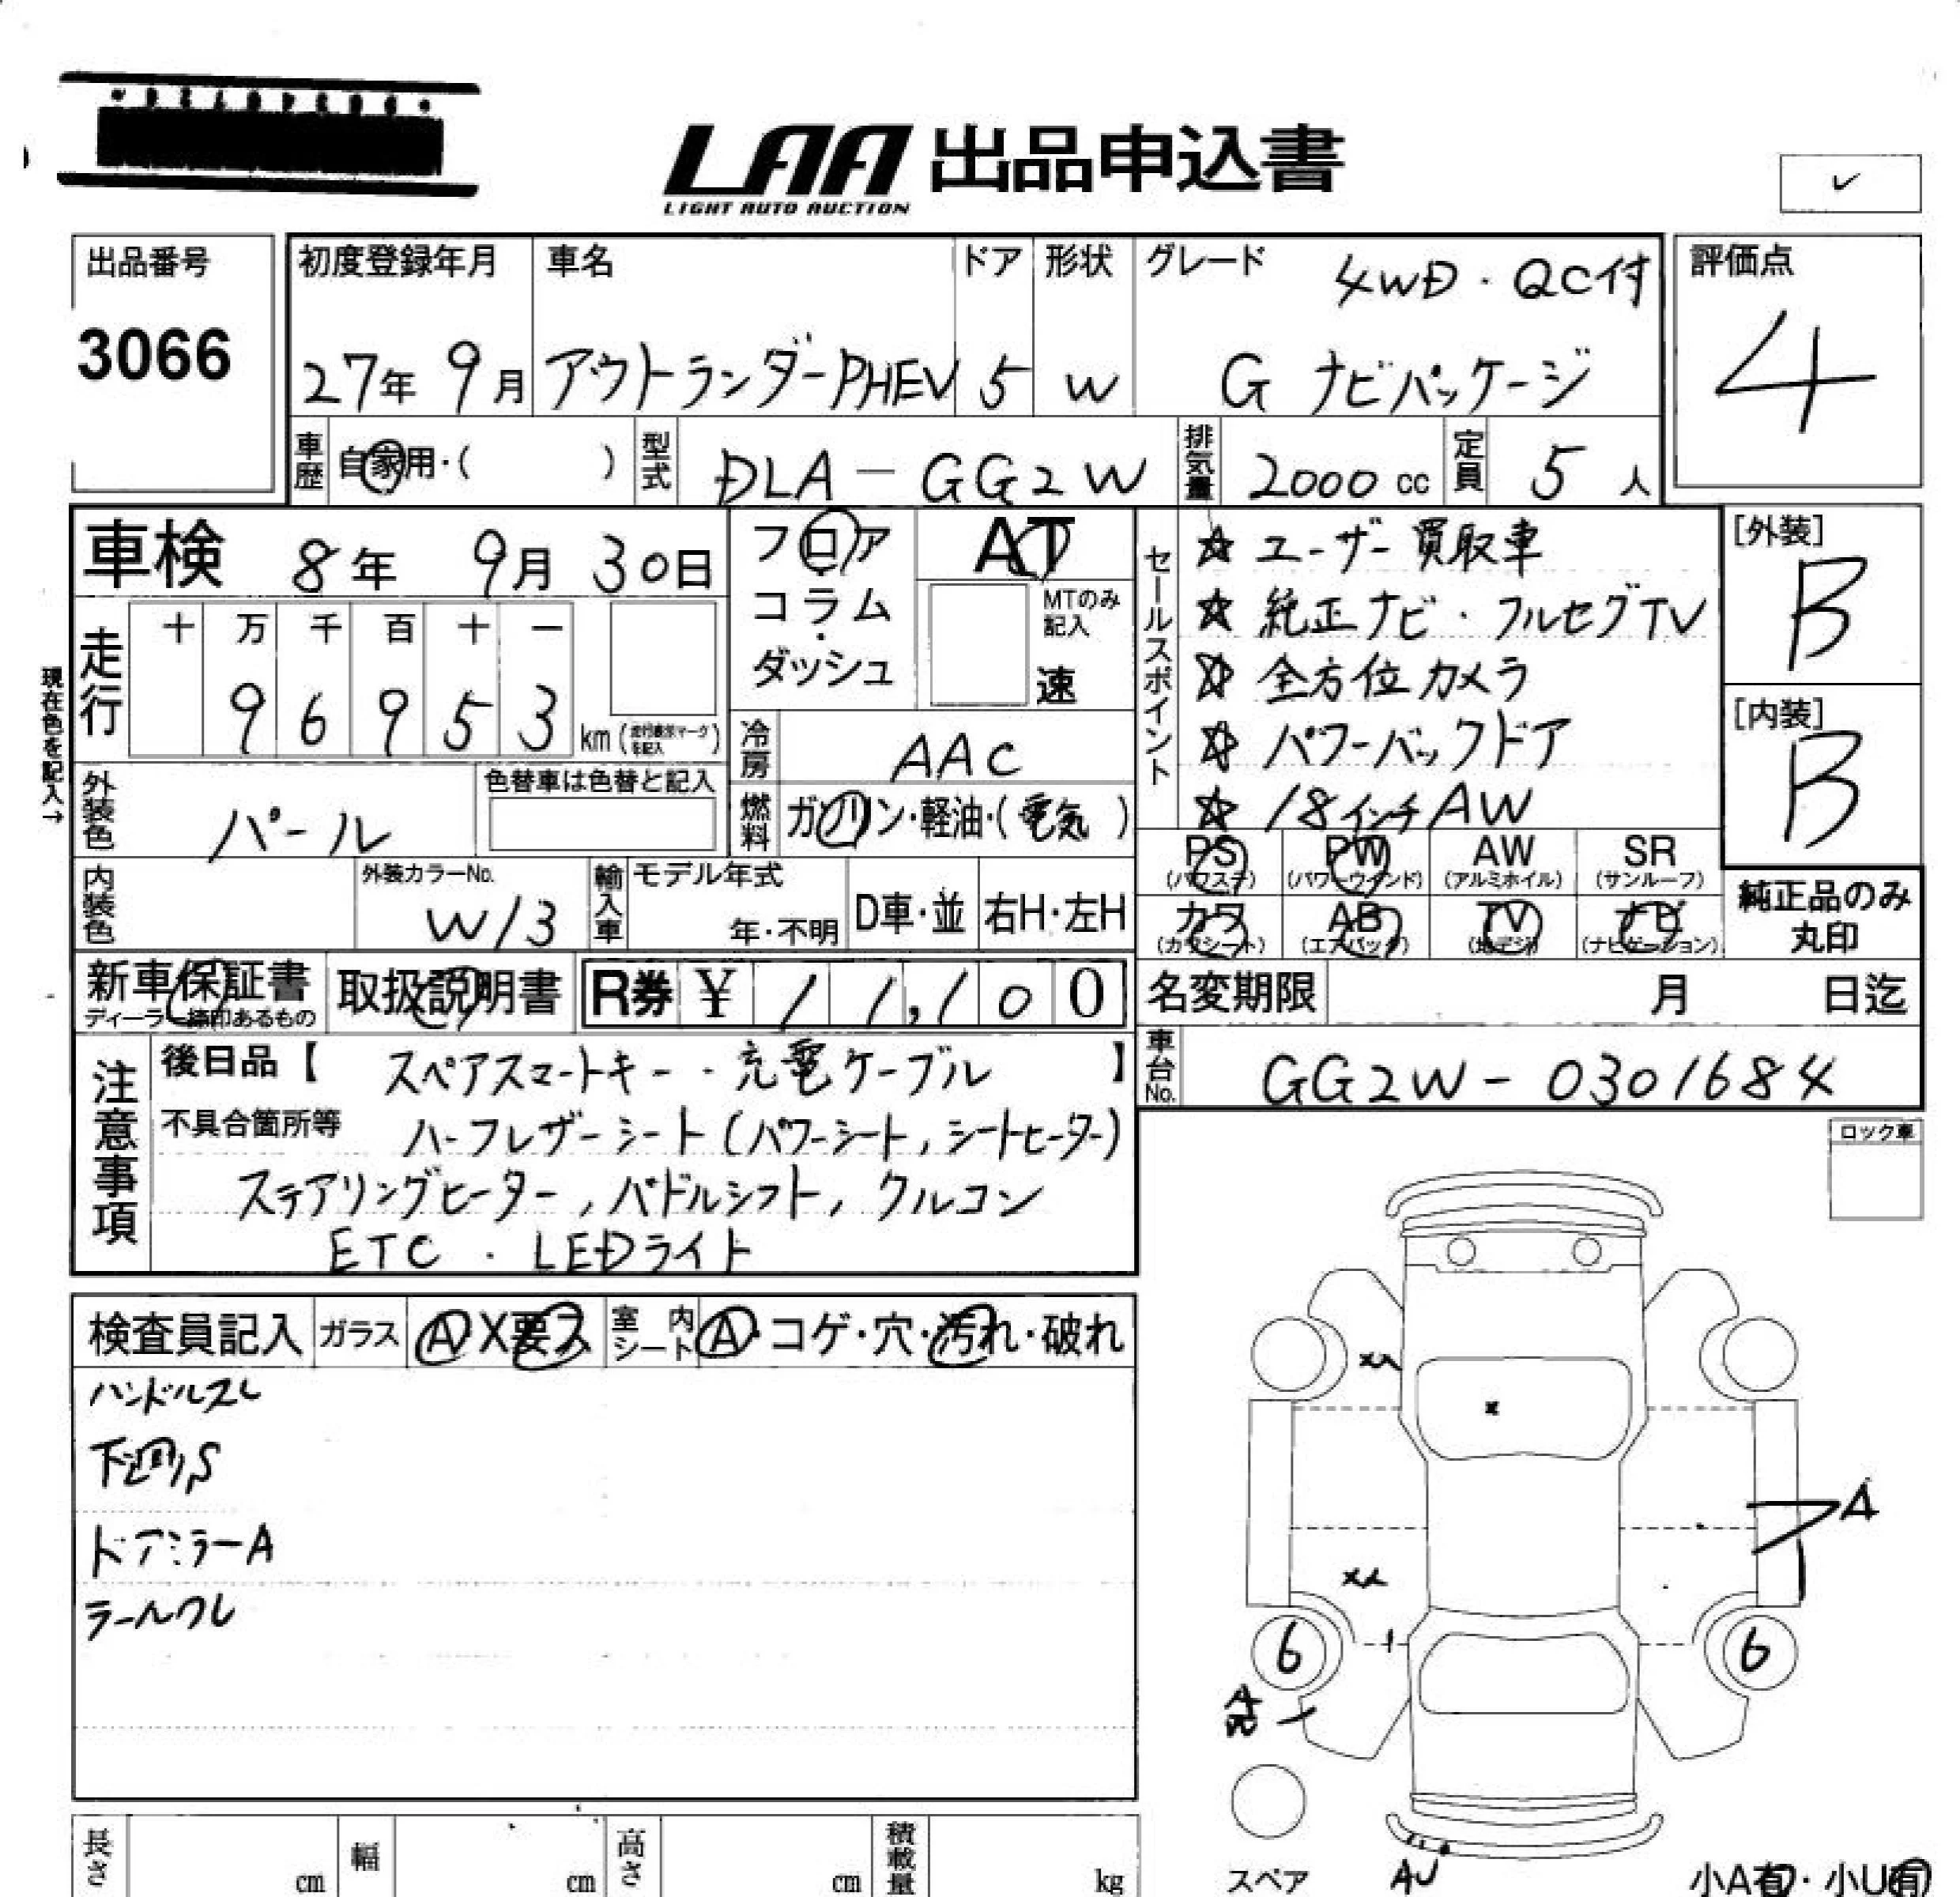 LAA 出品申込書
LIGHT AUTO AUCTION
出品番号
3066
初度登録年月
27年 9月
車名
アウトランダーPHEV
ドア
5
形状
W
グレード
4WD・QC付
G ナビパッケージ
評価点
4
車歴 自家用・( )
型式 DLA-GG2W
排気量 2000 cc
定員 5 人
車検 8年 9月 30日
フロア
コラム
ダッシュ
AT
MTのみ記入
速
走行
十 万 千 百 十 一
9 6 9 5 3 km
現在色を記入→
外装色 パール
色替車は色替と記入
冷房 AAC
燃料 ガソリン・軽油・(電気)
内装色
外装カラーNo.
W13
輸入車
モデル年式
年・不明
D車・並
右H・左H
セールスポイント
☆ ユーザー買取車
☆ 純正ナビ・フルセグTV
☆ 全方位カメラ
☆ パワーバックドア
☆ 18インチAW
[外装]
B
[内装]
B
PS (パワステ)
PW (パワーウインド)
AW (アルミホイル)
SR (サンルーフ)
カワ (カワシート)
AB (エアバック)
TV (地デジ)
ナビ (ナビゲーション)
純正品のみ
丸印
新車保証書
ディーラー捺印あるもの
取扱説明書
R券 ¥ 11,100
名変期限 月 日迄
車台No. GG2W-0301684
注意事項
後日品【 スペアスマートキー・充電ケーブル 】
不具合箇所等 ハーフレザーシート(パワーシート,シートヒーター)
ステアリングヒーター,パドルシフト,クルコン
ETC・LEDライト
ロック車
検査員記入 ガラス A X要ス 室内シート A・コゲ・穴・汚れ・破れ
ハンドルスレ
下回りS
ドアミラーA
A
6
6
スペア
AU
小A有・小U有
長さ cm
幅 cm
高さ cm
積載量 kg